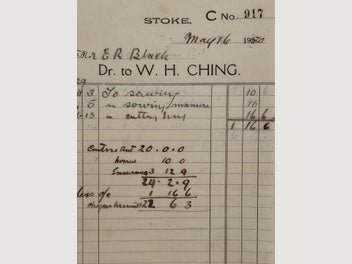 STOKE. C No. 917
May 16 1930
Mr E R Black
Dr. to W. H. CHING.
3 To sowing 10 6
5 " sowing manure 10
13 " cutting hay 16 6
1 16 6
20.0.0
10 0
Insurance 3 12 9
24.2.9
less o/c 1 16 6
22 6 3